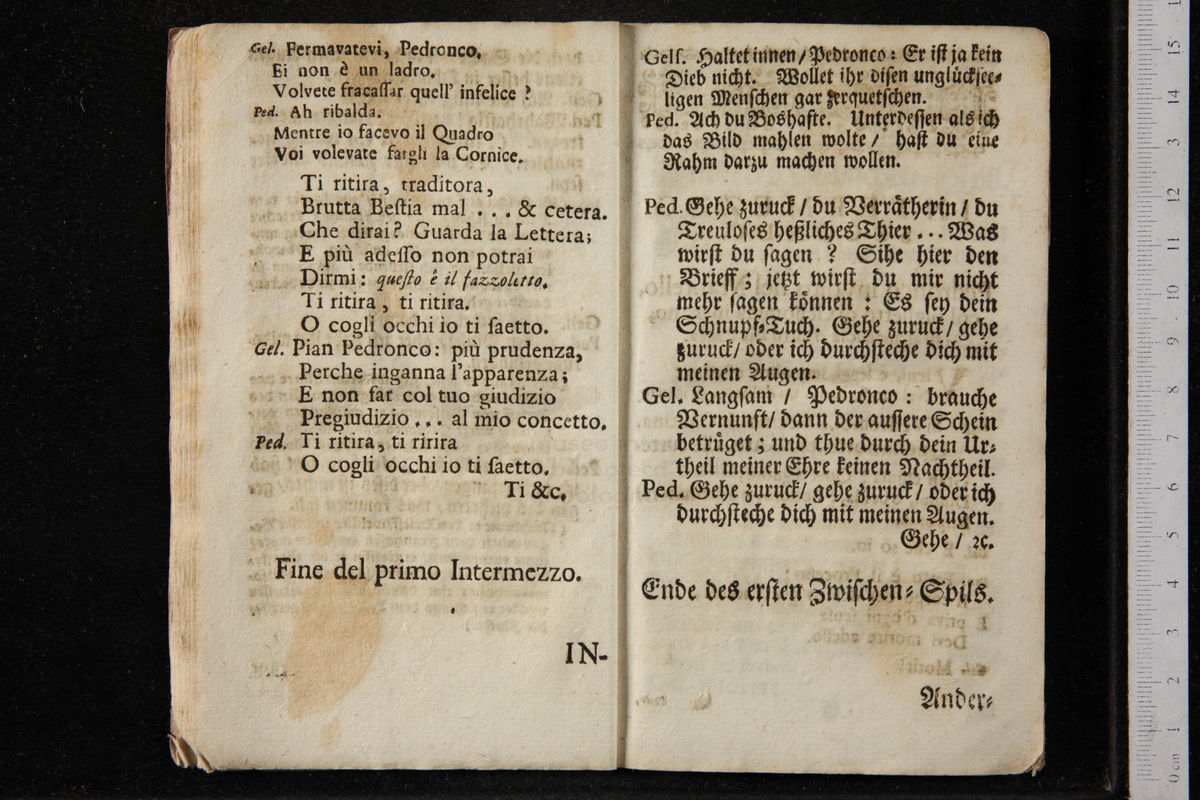 Gel. Fermavatevi, Pedronco,
Ei non è un ladro.
Volvete fracaſſar quell' infelice ?
Ped. Ah ribalda.
Mentre io facevo il Quadro
Voi volevate fargli la Cornice.
Ti ritira, traditora,
Brutta Beſtia mal . . . & cetera.
Che dirai? Guarda la Lettera;
E più adeſſo non potrai
Dirmi: queſto è il fazzoletto.
Ti ritira, ti ritira.
O cogli occhi io ti ſaetto.
Gel. Pian Pedronco: più prudenza,
Perche inganna l'apparenza;
E non far col tuo giudizio
Pregiudizio . . . al mio concetto.
Ped. Ti ritira, ti ririra
O cogli occhi io ti ſaetto.
Ti &c.
Fine del primo Intermezzo.
IN-
Gelſ. Haltet innen / Pedronco : Er iſt ja kein
Dieb nicht. Wollet ihr diſen unglückſee⸗
ligen Menſchen gar zerquetſchen.
Ped. Ach du Boshafte. Unterdeſſen als ich
das Bild mahlen wolte / haſt du eine
Rahm darzu machen wollen.
Ped. Gehe zuruck / du Verrätherin / du
Treuloſes heßliches Thier . . . Was
wirſt du ſagen ? Sihe hier den
Brieff ; jetzt wirſt du mir nicht
mehr ſagen können : Es ſey dein
Schnupf⸗Tuch. Gehe zuruck / gehe
zuruck / oder ich durchſteche dich mit
meinen Augen.
Gel. Langſam / Pedronco : brauche
Vernunft / dann der auſſere Schein
betrüget ; und thue durch dein Ur⸗
theil meiner Ehre keinen Nachtheil.
Ped. Gehe zuruck / gehe zuruck / oder ich
durchſteche dich mit meinen Augen.
Gehe / ꝛc.
Ende des erſten Zwiſchen⸗ Spils.
Ander⸗
0 cm 1 2 3 4 5 6 7 8 9 10 11 12 13 14 15